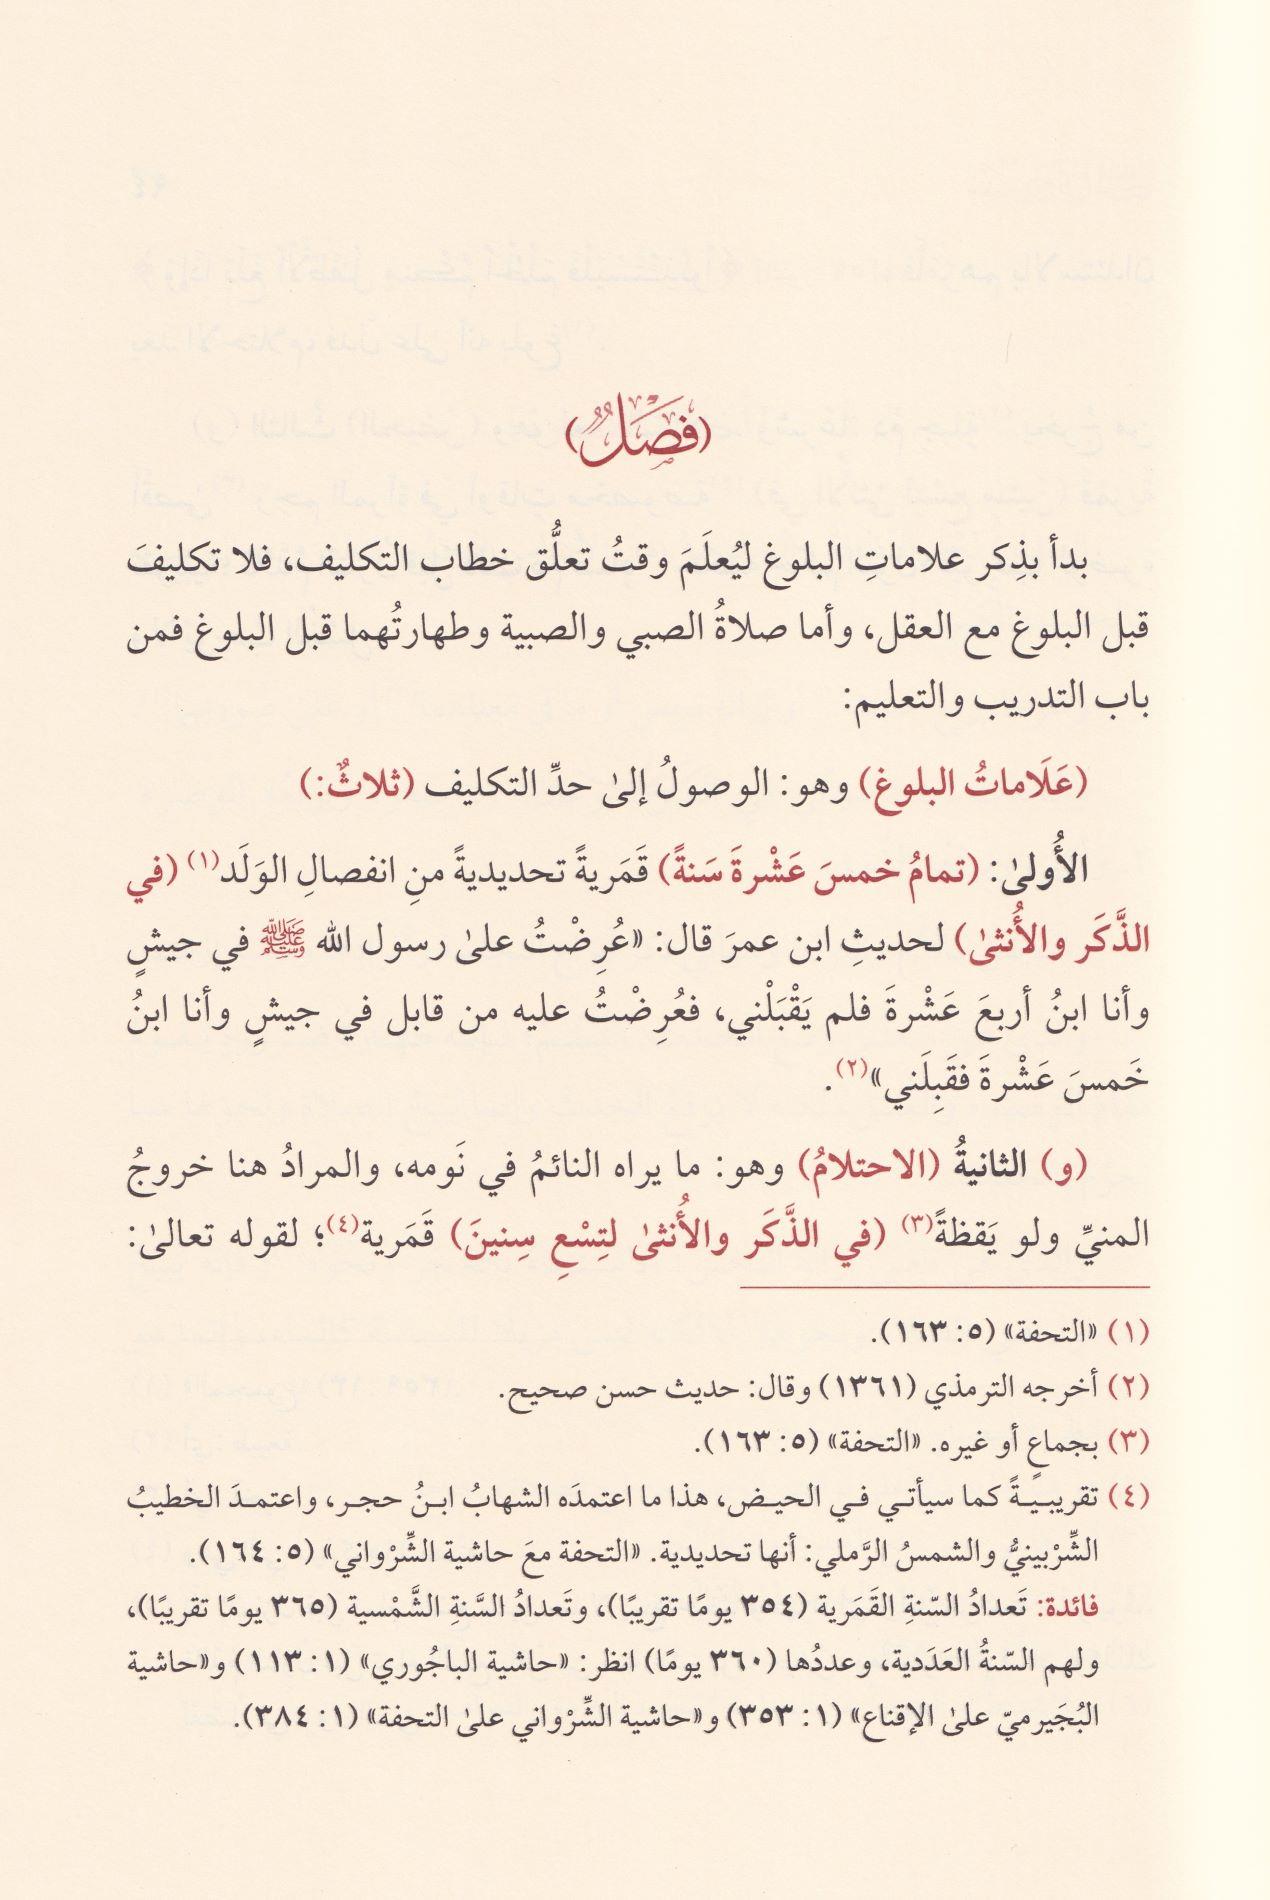 (فَصْلٌ)
بدأ بذِكر علاماتِ البلوغ ليُعلَمَ وقتُ تعلُّق خطاب التكليف، فلا تكليفَ
قبل البلوغ مع العقل، وأما صلاةُ الصبي والصبية وطهارتُهما قبل البلوغ فمن
باب التدريب والتعليم:
(عَلَاماتُ البلوغ) وهو: الوصولُ إلىٰ حدِّ التكليف (ثلاثٌ:)
الأُولىٰ: (تمامُ خمسَ عَشْرةَ سَنةً) قَمَريةً تحديديةً منِ انفصالِ الوَلَد(١) (في
الذَّكَر والأُنثىٰ) لحديثِ ابن عمرَ قال: «عُرِضْتُ علىٰ رسول الله ﷺ في جيشٍ
وأنا ابنُ أربعَ عَشْرةَ فلم يَقْبَلْني، فعُرِضْتُ عليه من قابل في جيشٍ وأنا ابنُ
خَمسَ عَشْرةَ فقَبِلَني»(٢).
(و) الثانيةُ (الاحتلامُ) وهو: ما يراه النائمُ في نَومه، والمرادُ هنا خروجُ
المنيِّ ولو يَقظةً(٣) (في الذَّكَر والأُنثىٰ لتِسْعِ سِنينَ) قَمَرية(٤)؛ لقوله تعالىٰ:
(١) «التحفة» (٥: ١٦٣).
(٢) أخرجه الترمذي (١٣٦١) وقال: حديث حسن صحيح.
(٣) بجماعٍ أو غيره. «التحفة» (٥: ١٦٣).
(٤) تقريبيةً كما سيأتي في الحيض، هذا ما اعتمدَه الشهابُ ابنُ حجر، واعتمدَ الخطيبُ
الشِّرْبينيُّ والشمسُ الرَّملي: أنها تحديدية. «التحفة معَ حاشية الشِّرْواني» (٥: ١٦٤).
فائدة: تَعدادُ السّنةِ القَمَرية (٣٥٤ يومًا تقريبًا)، وتَعدادُ السَّنةِ الشَّمْسية (٣٦٥ يومًا تقريبًا)،
ولهم السّنةُ العَدَدية، وعددُها (٣٦٠ يومًا) انظر: «حاشية الباجُوري» (١: ١١٣) و«حاشية
البُجَيرميّ علىٰ الإقناع» (١: ٣٥٣) و«حاشية الشِّرْواني علىٰ التحفة» (١: ٣٨٤).